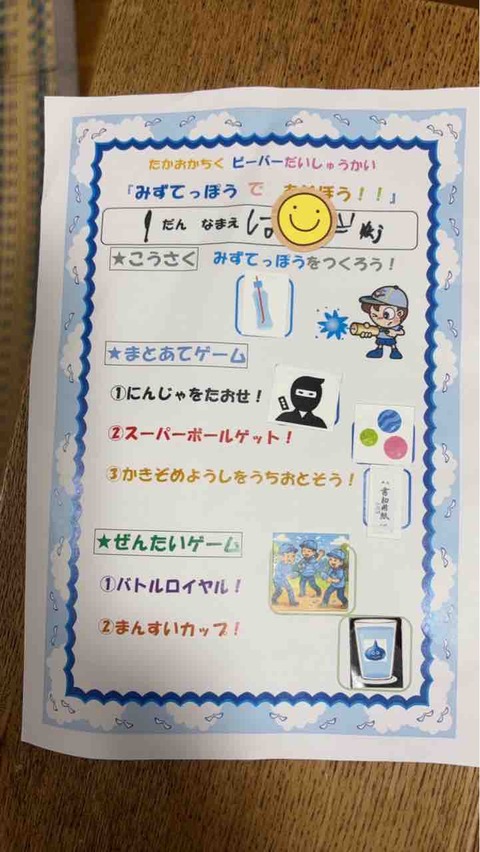 たかおかちく ビーバーだいしゅうかい
『みずてっぽう で あそぼう！！』
1 だん なまえ
★こうさく みずてっぽうをつくろう！
★まとあてゲーム
①にんじゃをたおせ！
②スーパーボールゲット！
③かきぞめようしをうちおとそう！
書初用紙
★ぜんたいゲーム
①バトルロイヤル！
②まんすいカップ！